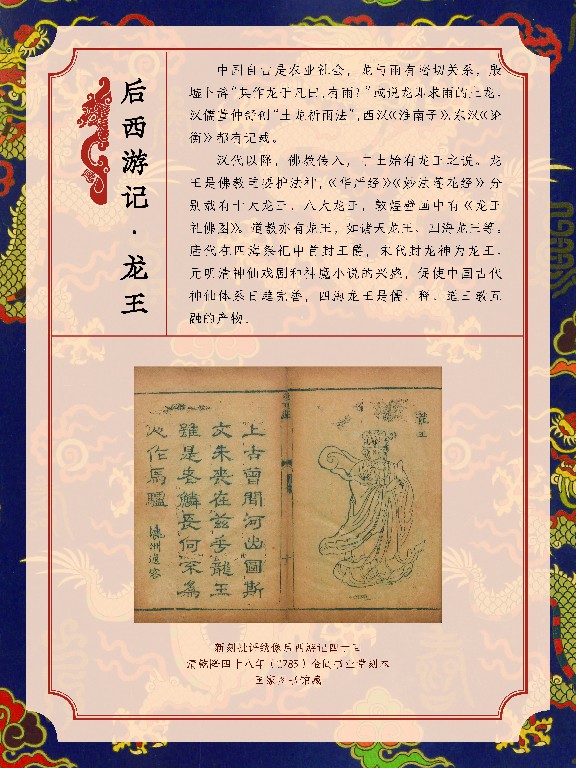 后西游记·龙王
中国自古是农业社会，龙与雨有密切关系，殷
墟卜辞“其作龙于凡田，有雨？”或说龙即求雨的土龙。
汉儒董仲舒创“土龙祈雨法”，西汉《淮南子》、东汉《论
衡》都有记载。
汉代以降，佛教传入，中土始有龙王之说。龙
王是佛教重要护法神，《华严经》《妙法莲花经》分
别载有十大龙王、八大龙王，敦煌壁画中有《龙王
礼佛图》。道教亦有龙王，如诸天龙王、四海龙王等。
唐代在四海祭祀中首封王爵，宋代封龙神为龙王。
元明清神仙戏剧和神魔小说的兴盛，促使中国古代
神仙体系日趋完善，四海龙王是儒、释、道三教互
融的产物。
龍王
上古曾聞河出圖斯
文朱喪在茲乎龍王
雖是老鱗長何不為
心作馬驢
新刻批评绣像后西游记四十回
清乾隆四十八年（1783）金阊书业堂刻本
国家图书馆藏